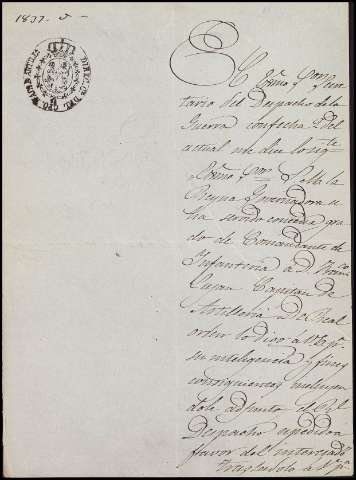 1837
El Exmo. Sor. Secre
tario del Despacho de la
Guerra con fecha 2 del
actual me dice lo sigte
Exmo. Sor. S. M. la
Reyna Gobernadora se
ha servido conceder gra
do de Comandante de
Infantería a D. Franco
Capitan de
Artillería. De Real
orden lo digo a V. E. pa.
su inteligencia y fines
consiguientes incluyen
dole adjunto el Rl.
Despacho expedido a
favor del interesado.
Trasladolo a V. pa.